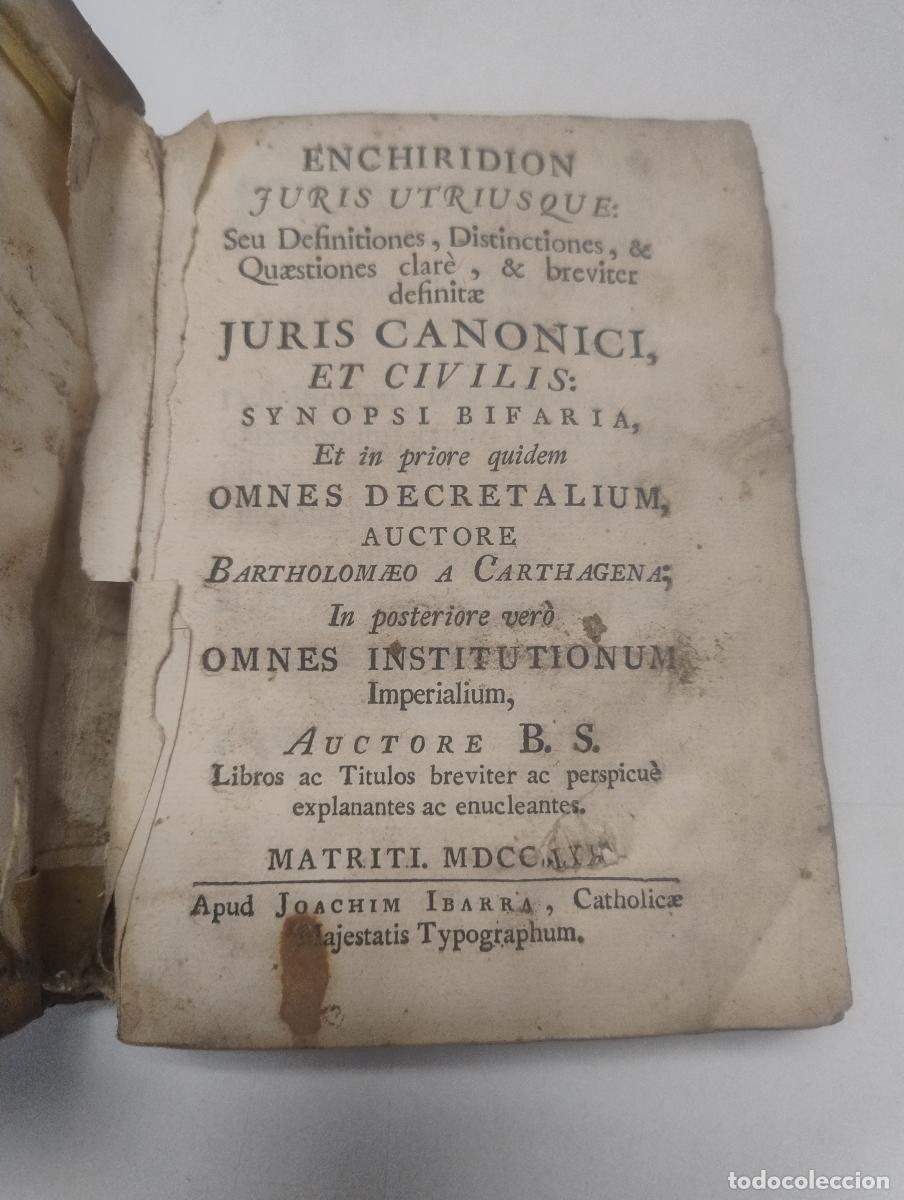 ENCHIRIDION
JURIS UTRIUSQUE:
Seu Definitiones, Distinctiones, &
Quæstiones clarè, & breviter
definitæ
JURIS CANONICI,
ET CIVILIS:
SYNOPSI BIFARIA,
Et in priore quidem
OMNES DECRETALIUM,
AUCTORE
BARTHOLOMÆO A CARTHAGENA;
In posteriore verò
OMNES INSTITUTIONUM
Imperialium,
AUCTORE B. S.
Libros ac Titulos breviter ac perspicuè
explanantes ac enucleantes.
MATRITI.
Apud JOACHIM IBARRA, Catholicæ
Majestatis Typographum.
todocoleccion